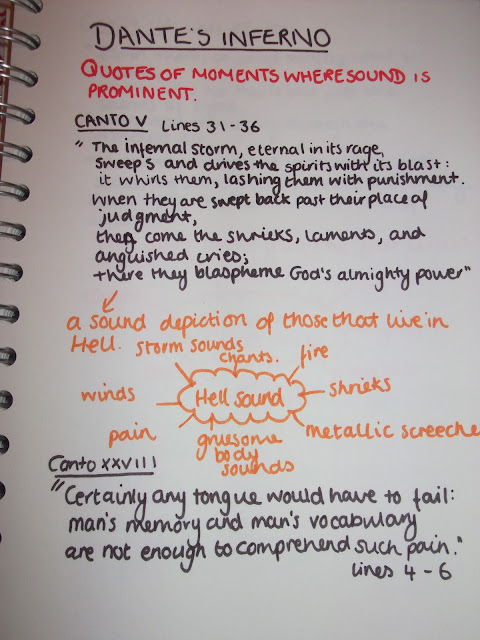 DANTE'S INFERNO
QUOTES OF MOMENTS WHERE SOUND IS
PROMINENT.
CANTO V Lines 31-36
"The infernal storm, eternal in its rage,
sweeps and drives the spirits with its blast:
it whirls them, lashing them with punishment.
When they are swept back past their place of
judgment,
then come the shrieks, laments, and
anguished cries;
there they blaspheme God's almighty power"
a sound depiction of those that live in
Hell.
storm sounds
chants.
fire
winds
Hell sound
shrieks
pain
gruesome
body
sounds
metallic screeche
Canto XXVIII
"Certainly any tongue would have to fail:
man's memory and man's vocabulary
are not enough to comprehend such pain."
lines 4-6